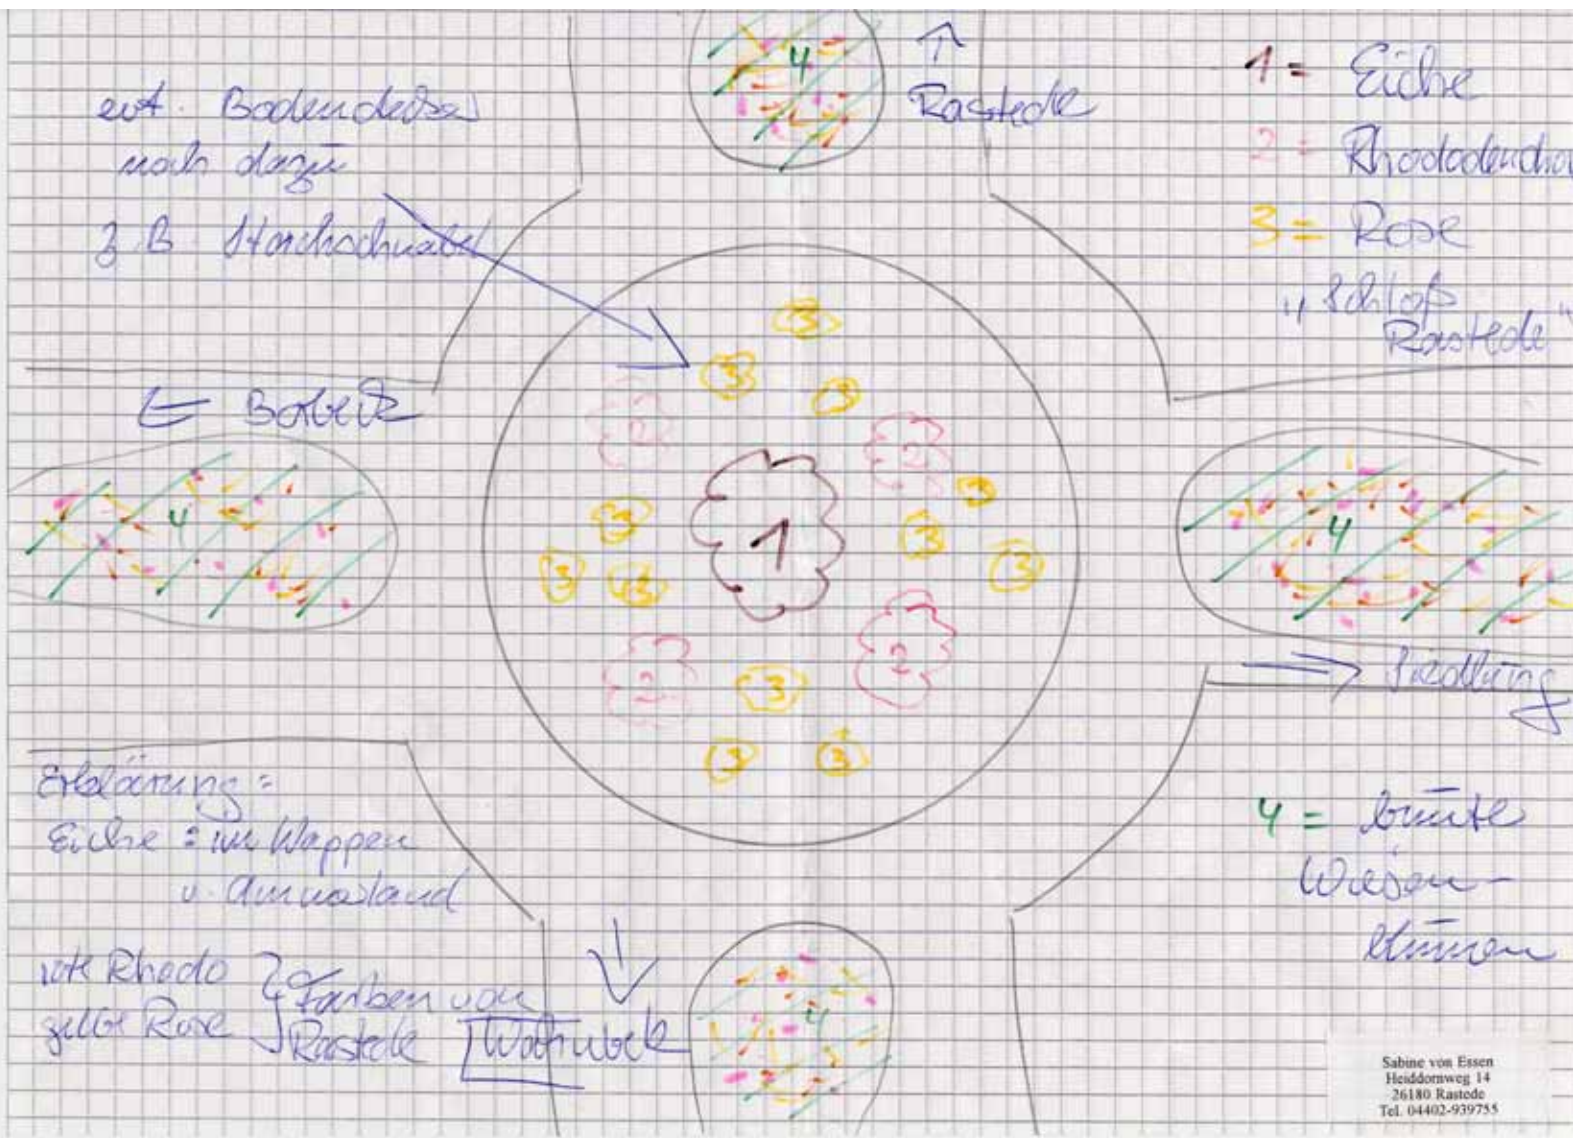 4
evt. Bodendecker
noch dazu
z.B. Storchschnabel
Rastede
1 = Eiche
2 = Rhododendro
3 = Rose
„Schloß
Rastede"
Borbeck
3
3
3
2
2
3
4
1
3
3
4
3
3
3
2
2
3
3
3
Siedlung
4 = bunte
Wiesen-
blumen
Erklärung =
Eiche : im Wappen
v. Ammerland
rote Rhodo
gelbe Rose
Farben von
Rastede
Wahnbek
4
Sabine von Essen
Heiddornweg 14
26180 Rastede
Tel. 04402-939755